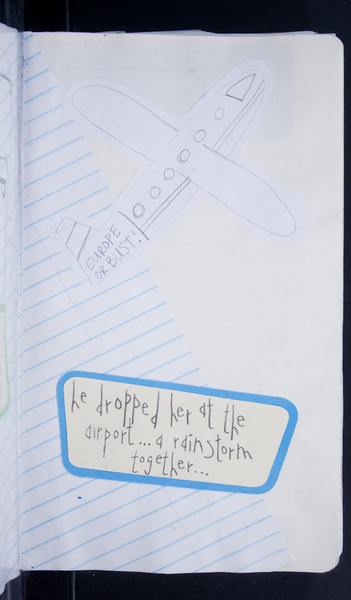 EUROPE
OR BUST!
he dropped her at the
airport... a rainstorm
together...